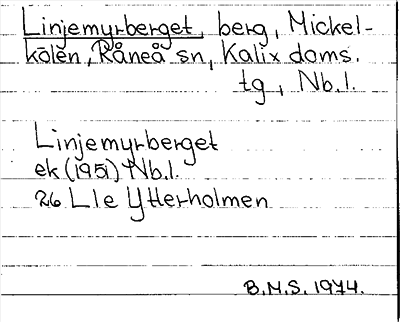 Linjemyrberget, berg, Mickel-
kölen, Råneå sn, Kalix doms.
tg, Nb.l.
Linjemyrberget
ek (1951) Nb.l.
26 L1e Ytterholmen
B.M.S. 1974.